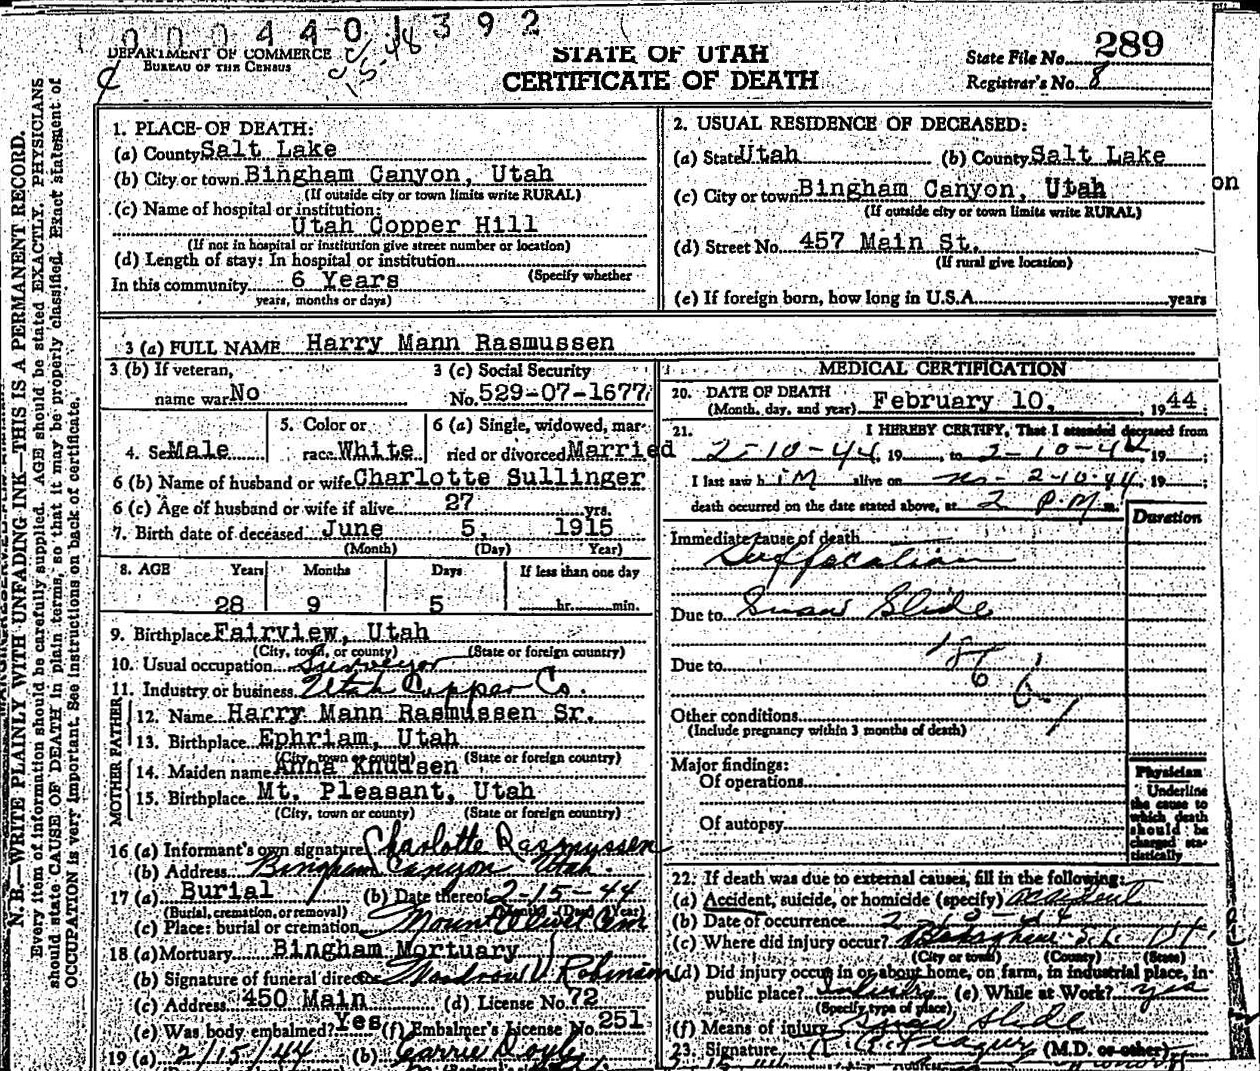 00044-01392
DEPARTMENT OF COMMERCE
BUREAU OF THE CENSUS
STATE OF UTAH
CERTIFICATE OF DEATH
State File No. 289
Registrar's No. 8
N. B.—WRITE PLAINLY WITH UNFADING INK—THIS IS A PERMANENT RECORD.
Every item of information should be carefully supplied. AGE should be stated EXACTLY. PHYSICIANS
should state CAUSE OF DEATH in plain terms, so that it may be properly classified. Exact statement of
OCCUPATION is very important. See instructions on back of certificate.
1. PLACE OF DEATH:
(a) County Salt Lake
(b) City or town Bingham Canyon, Utah
(If outside city or town limits write RURAL)
(c) Name of hospital or institution:
Utah Copper Hill
(If not in hospital or institution give street number or location)
(d) Length of stay: In hospital or institution
(Specify whether
In this community 6 Years
years, months or days)
2. USUAL RESIDENCE OF DECEASED:
(a) State Utah (b) County Salt Lake
(c) City or town Bingham Canyon, Utah
on
(If outside city or town limits write RURAL)
(d) Street No. 457 Main St.
(If rural give location)
(e) If foreign born, how long in U.S.A. years
3 (a) FULL NAME Harry Mann Rasmussen
3 (b) If veteran,
name war No
3 (c) Social Security
No. 529-07-1677
4. Sex Male
5. Color or
race White
6 (a) Single, widowed, mar-
ried or divorced Married
6 (b) Name of husband or wife Charlotte Sullinger
6 (c) Age of husband or wife if alive 27 yrs.
7. Birth date of deceased June 5, 1915
(Month) (Day) Year)
8. AGE Years Months Days If less than one day
28 9 5 hr. min.
9. Birthplace Fairview, Utah
(City, town, or county) (State or foreign country)
10. Usual occupation Surveyor
11. Industry or business Utah Copper Co.
FATHER
12. Name Harry Mann Rasmussen Sr.
13. Birthplace Ephriam, Utah
(City, town or county) (State or foreign country)
MOTHER
14. Maiden name Anna Knudsen
15. Birthplace Mt. Pleasant, Utah
(City, town or county) (State or foreign country)
16 (a) Informant's own signature Charlotte Rasmussen
(b) Address Bingham Canyon Utah.
17 (a) Burial (b) Date thereof 2-15-44
(Burial, cremation, or removal) (Month) (Day) (Year)
(c) Place: burial or cremation Mount Olivet Cem
18 (a) Mortuary Bingham Mortuary
(b) Signature of funeral director Woodrow V. Robinson
(c) Address 450 Main (d) License No. 72
(e) Was body embalmed? Yes (f) Embalmer's License No. 251
19 (a) 2/15/44 (b) Carrie Doyle
MEDICAL CERTIFICATION
20. DATE OF DEATH
(Month, day, and year) February 10, 1944
21. I HEREBY CERTIFY, That I attended deceased from
2-10-44, 19 to 2-10-44 19
I last saw him alive on 2-10-44, 19
death occurred on the date stated above, at 2 P.M. m.
Duration
Immediate cause of death
Suffocation
Due to Snow Slide
Due to
Other conditions
(Include pregnancy within 3 months of death)
Major findings:
Of operations
Of autopsy
Physician
Underline
the cause to
which death
should be
charged sta-
tistically
22. If death was due to external causes, fill in the following:
(a) Accident, suicide, or homicide (specify) accident
(b) Date of occurrence 2-10-44
(c) Where did injury occur? Bingham S.L. Ut.
(City or town) (County) (State)
(d) Did injury occur in or about home, on farm, in industrial place, in
public place? Industry (e) While at Work? yes
(Specify type of place)
(f) Means of injury Snow Slide
23. Signature (M.D. or other)